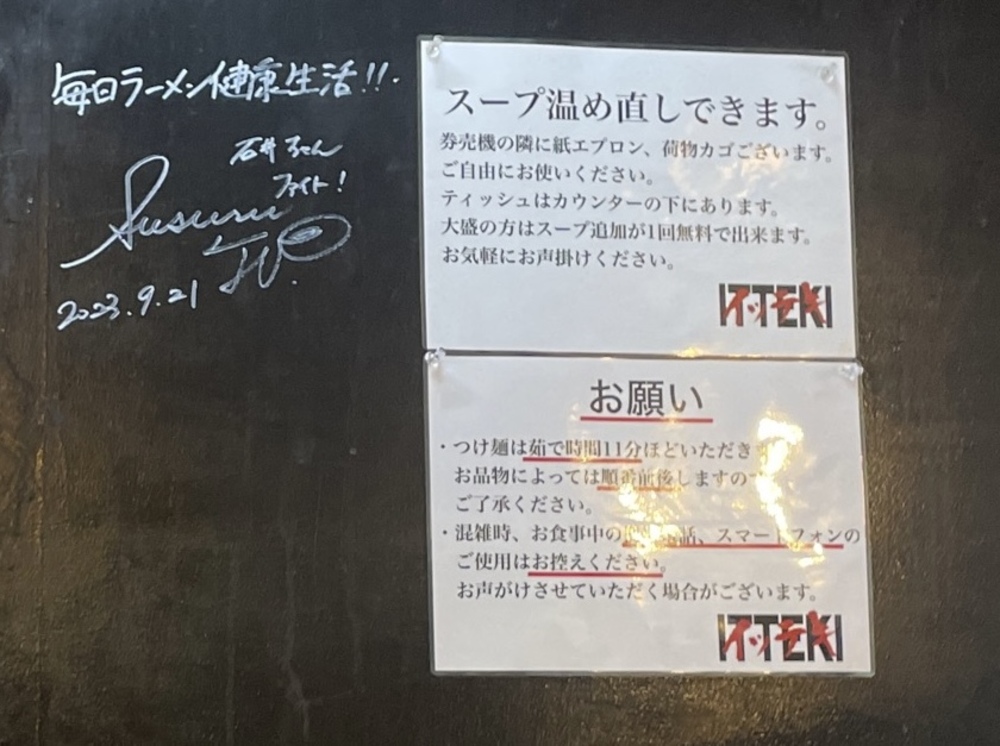 毎日ラーメン健康生活!!.
石井ちゃん
ファイト!
Susuru
TV.
2023.9.21
スープ温め直しできます。
券売機の隣に紙エプロン、荷物カゴございます。
ご自由にお使いください。
ティッシュはカウンターの下にあります。
大盛の方はスープ追加が1回無料で出来ます。
お気軽にお声掛けください。
ITTEKI
イッテキ
お願い
・つけ麺は茹で時間11分ほどいただき
お品物によっては順番前後しますので
ご了承ください。
・混雑時、お食事中の話、スマートフォンの
ご使用はお控えください。
お声がけさせていただく場合がございます。
ITTEKI
イッテキ